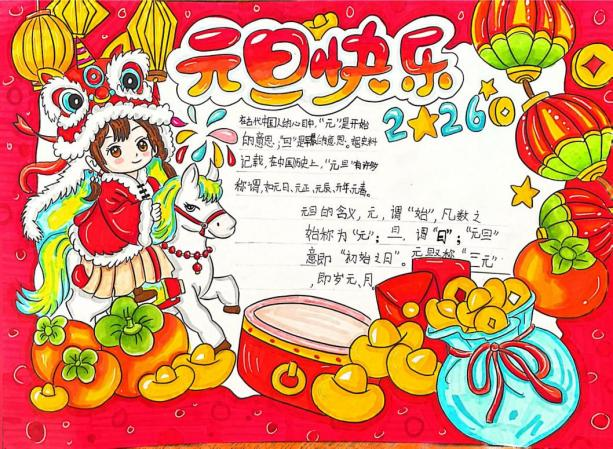 元旦快乐
2★26
在古代中国人的心目中，“元”是开始
的意思；“旦”是早晨的意思。据史料
记载，在中国历史上，“元旦”有许多
称谓，如元日、元正、元辰、开年、元春。
元旦的含义，元，谓“始”，凡数之
始称为“元”；旦，谓“日”；“元旦”
意即“初始之日”。元旦又称“三元”
，即岁元、月